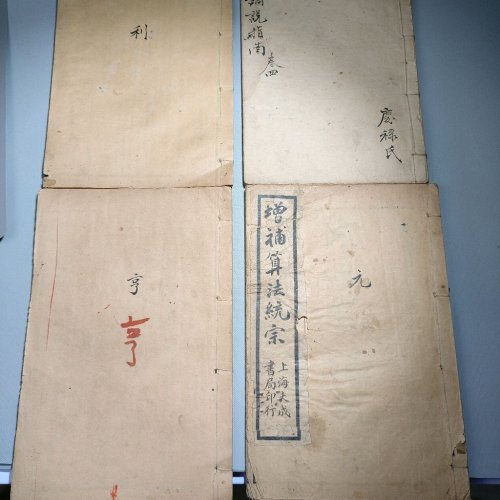 利
說指南
卷四
慶祿氏
亨
亨
元
增補算法統宗
上海大成
書局印行